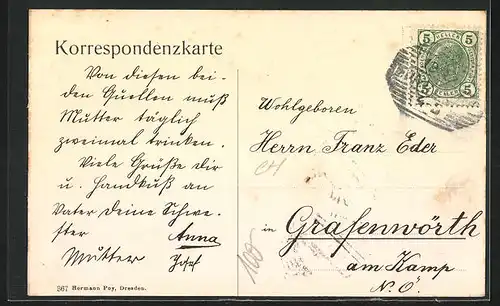 Korrespondenzkarte
Von diesen bei-
den Quellen muß
Mutter täglich
zweimal trinken.
Viele Grüße Dir
u. Handkuß an
Vater Deine Schwe-
ster Anna
Mutter Josef
367 Hermann Poy, Dresden.
5 HELLER 5
Wohlgeboren
Herrn Franz Eder
in Grafenwörth
am Kamp
N.Ö.
100